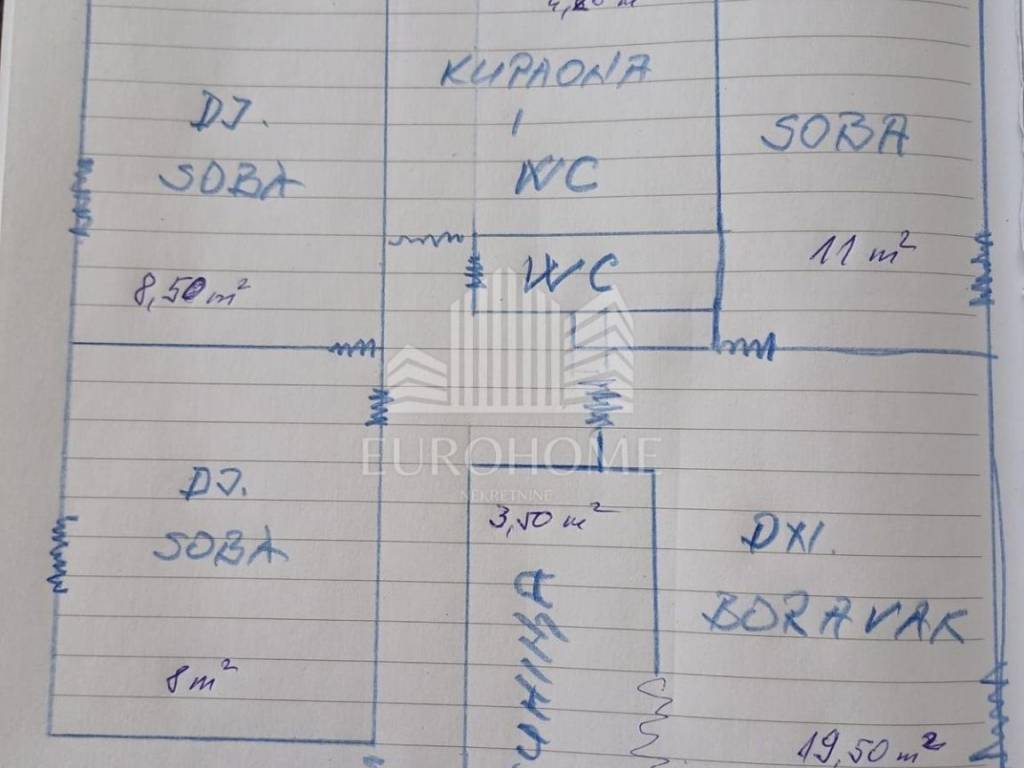 KUPAONA
DJ.
I
SOBA
SOBA
WC
WC
11 m²
8,50 m²
EUROHOME
NEKRETNINE
DJ.
3,50 m²
SOBA
DNI.
BORAVAK
KUHINJA
8 m²
19,50 m²